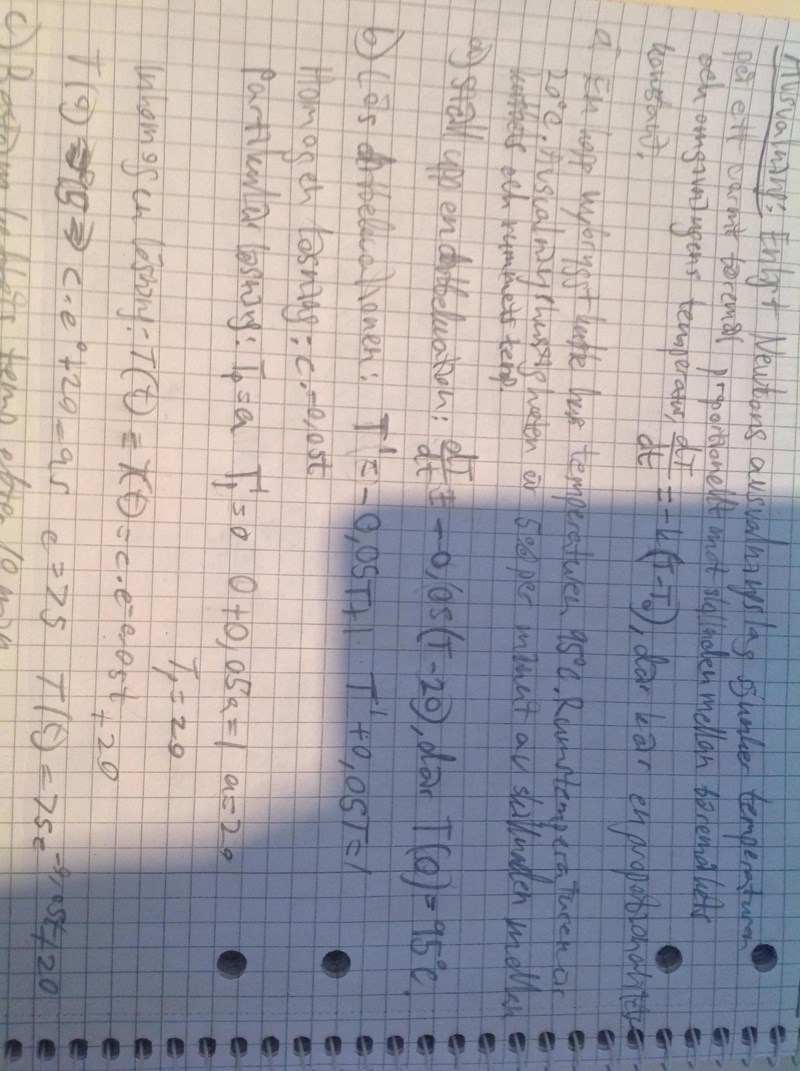 Avsvalning: Enligt Newtons avsvalningslag sjunker temperaturen
på ett varmt föremål proportionellt mot skillnaden mellan föremålets
och omgivningens temperatur, dT/dt = -k(T-T₀), där k är en proportionalitets
konstant.
En kopp nybryggt kaffe har temperaturen 95°C. Rumstemperaturen är
20°C. Avsvalningshastigheten är 5% per minut av skillnaden mellan
kaffets och rummets temp.
a) Ställ upp en diffekvation: dT/dt = -0,05(T-20), där T(0)=95°C.
b) Lös diffekvationen: T' = -0,05T+1 T'+0,05T=1
Homogen lösning: C·e^-0,05t
Partikulär lösning: Tp=a Tp'=0 0+0,05a=1 a=20
Tp=20
Inhomogen lösning: T(t) = y(t) = c·e^-0,05t + 20
T(0) = 95 => c·e⁰+20=95 c=75 T(t)=75e^-0,05t+20
c) temp efter 10 min